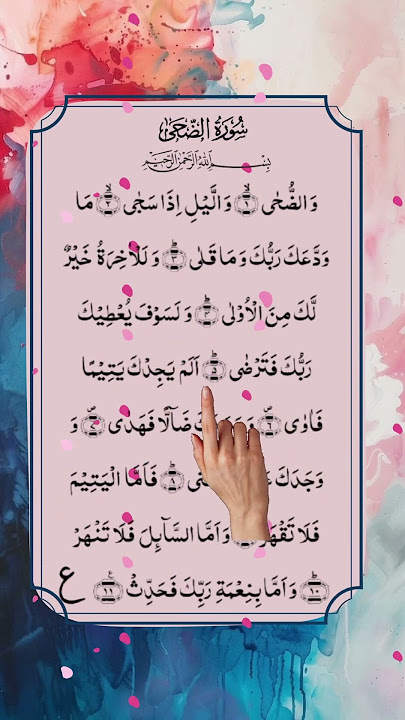 سُوْرَةُ الضُّحٰى
بِسْمِ اللّٰهِ الرَّحْمٰنِ الرَّحِيْمِ
وَالضُّحٰى ۙ﴿۱﴾ وَالَّيْلِ اِذَا سَجٰى ۙ﴿۲﴾ مَا
وَدَّعَكَ رَبُّكَ وَ مَا قَلٰى ؕ﴿۳﴾ وَ لَلْاٰخِرَةُ خَيْرٌ
لَّكَ مِنَ الْاُوْلٰى ؕ﴿۴﴾ وَ لَسَوْفَ يُعْطِيْكَ
رَبُّكَ فَتَرْضٰى ؕ﴿۵﴾ اَلَمْ يَجِدْكَ يَتِيْمًا
فَاٰوٰى ۪﴿۶﴾ ضَآلًّا فَهَدٰى ۪﴿۷﴾ وَ
وَجَدَكَ ؕ﴿۸﴾ فَاَمَّا الْيَتِيْمَ
فَلَا وَ اَمَّا السَّآىِٕلَ فَلَا تَنْهَرْ
ؕ﴿۱۰﴾ وَ اَمَّا بِنِعْمَةِ رَبِّكَ فَحَدِّثْ ﴿۱۱﴾ ع